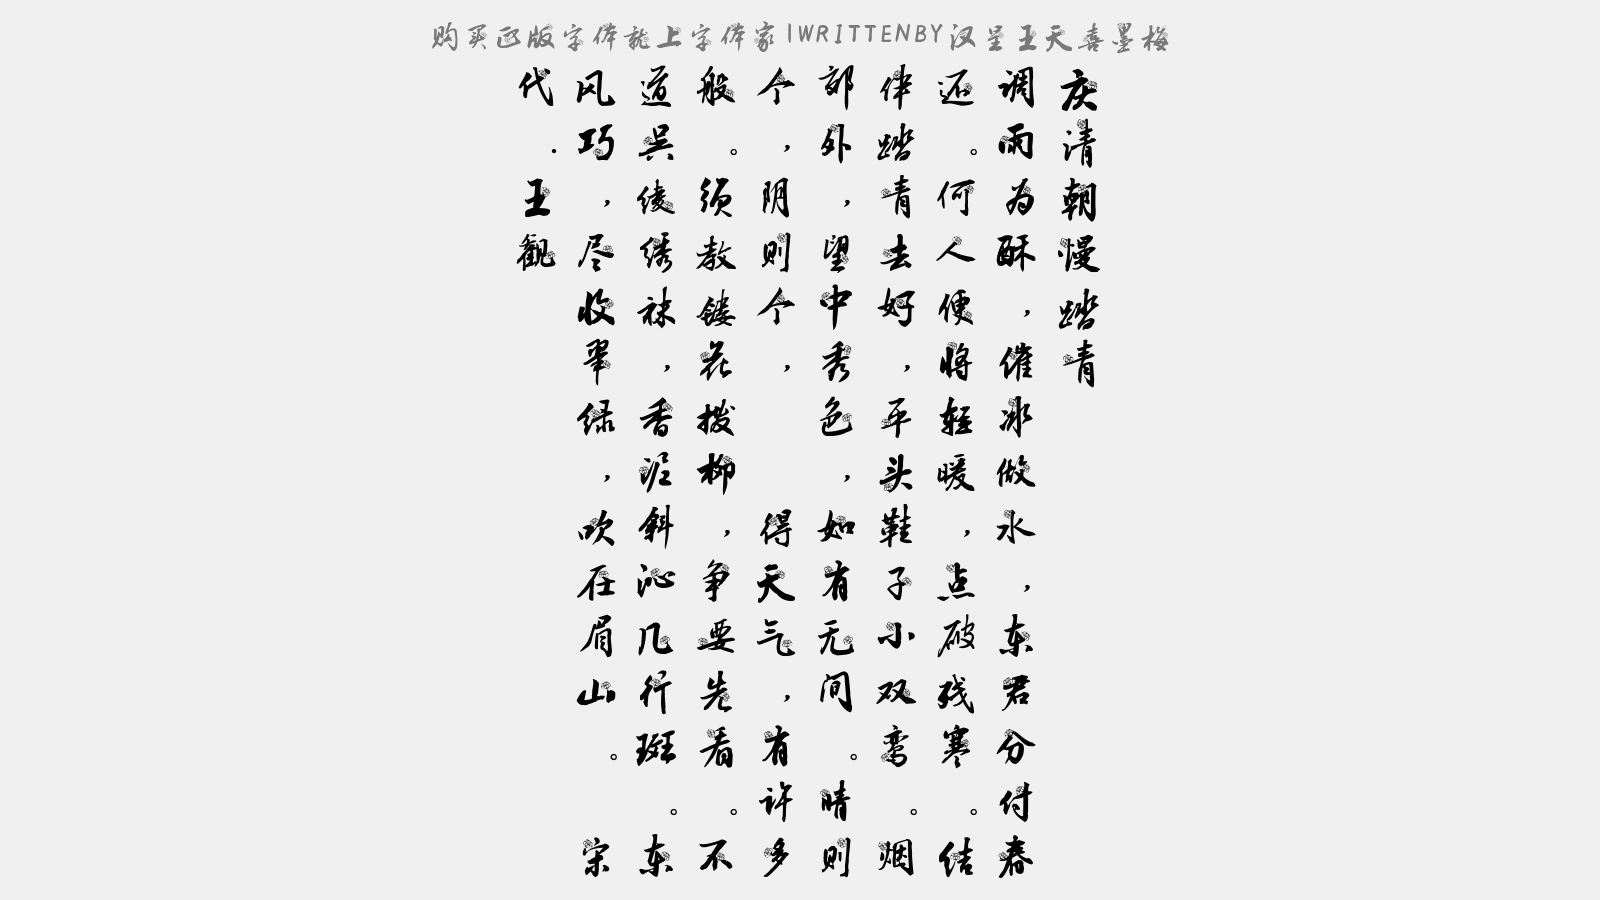 购买正版字体就上字体家|WRITTENBY汉呈王天喜墨梅
庆清朝慢踏青
调雨为酥，催冰做水，东君分付春
还。何人便将轻暖，点破残寒。结
伴踏青去好，平头鞋子小双鸾。烟
郊外，望中秀色，如有无间。晴则
个，阴则个，得天气，有许多
般。须教镂花拨柳，争要先看。不
道吴绫绣袜，香泥斜沁几行斑。东
风巧，尽收翠绿，吹在眉山。宋
代.王觀